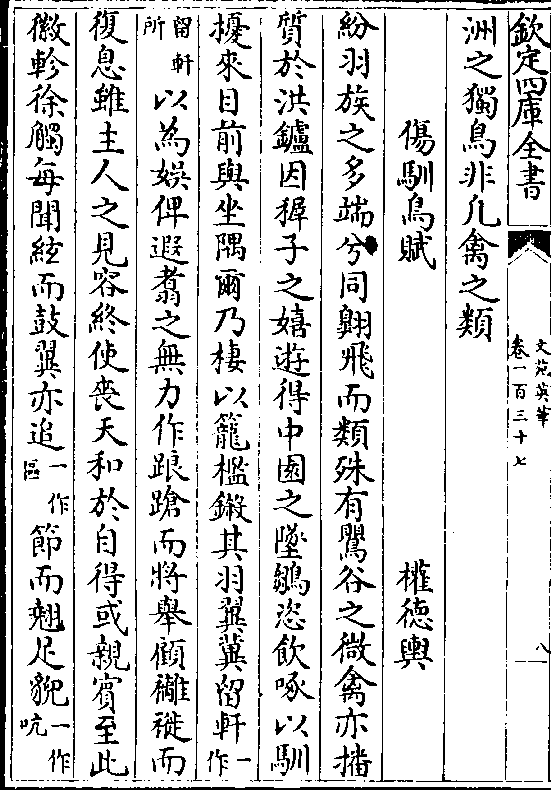 欽定四庫全書
文苑英華
卷一百三十七
八
洲之獨鳥非凡禽之類
傷馴鳥賦 權德輿
紛羽族之多端兮同翾飛而類殊有鸎谷之微禽亦播
質於洪鑪因穉子之嬉遊得中園之墜鶵恣飲啄以馴
擾來目前與坐隅爾乃棲以籠檻鎩其羽翼冀留軒一作
留軒所以為娛俾遐翥之無力作踉蹌而將舉顧䙰褷而
復息雖主人之見容終使喪天和於自得或親賓至此
徽軫徐觸每聞絃而鼓翼亦追一作區節而翹足貌一作吭